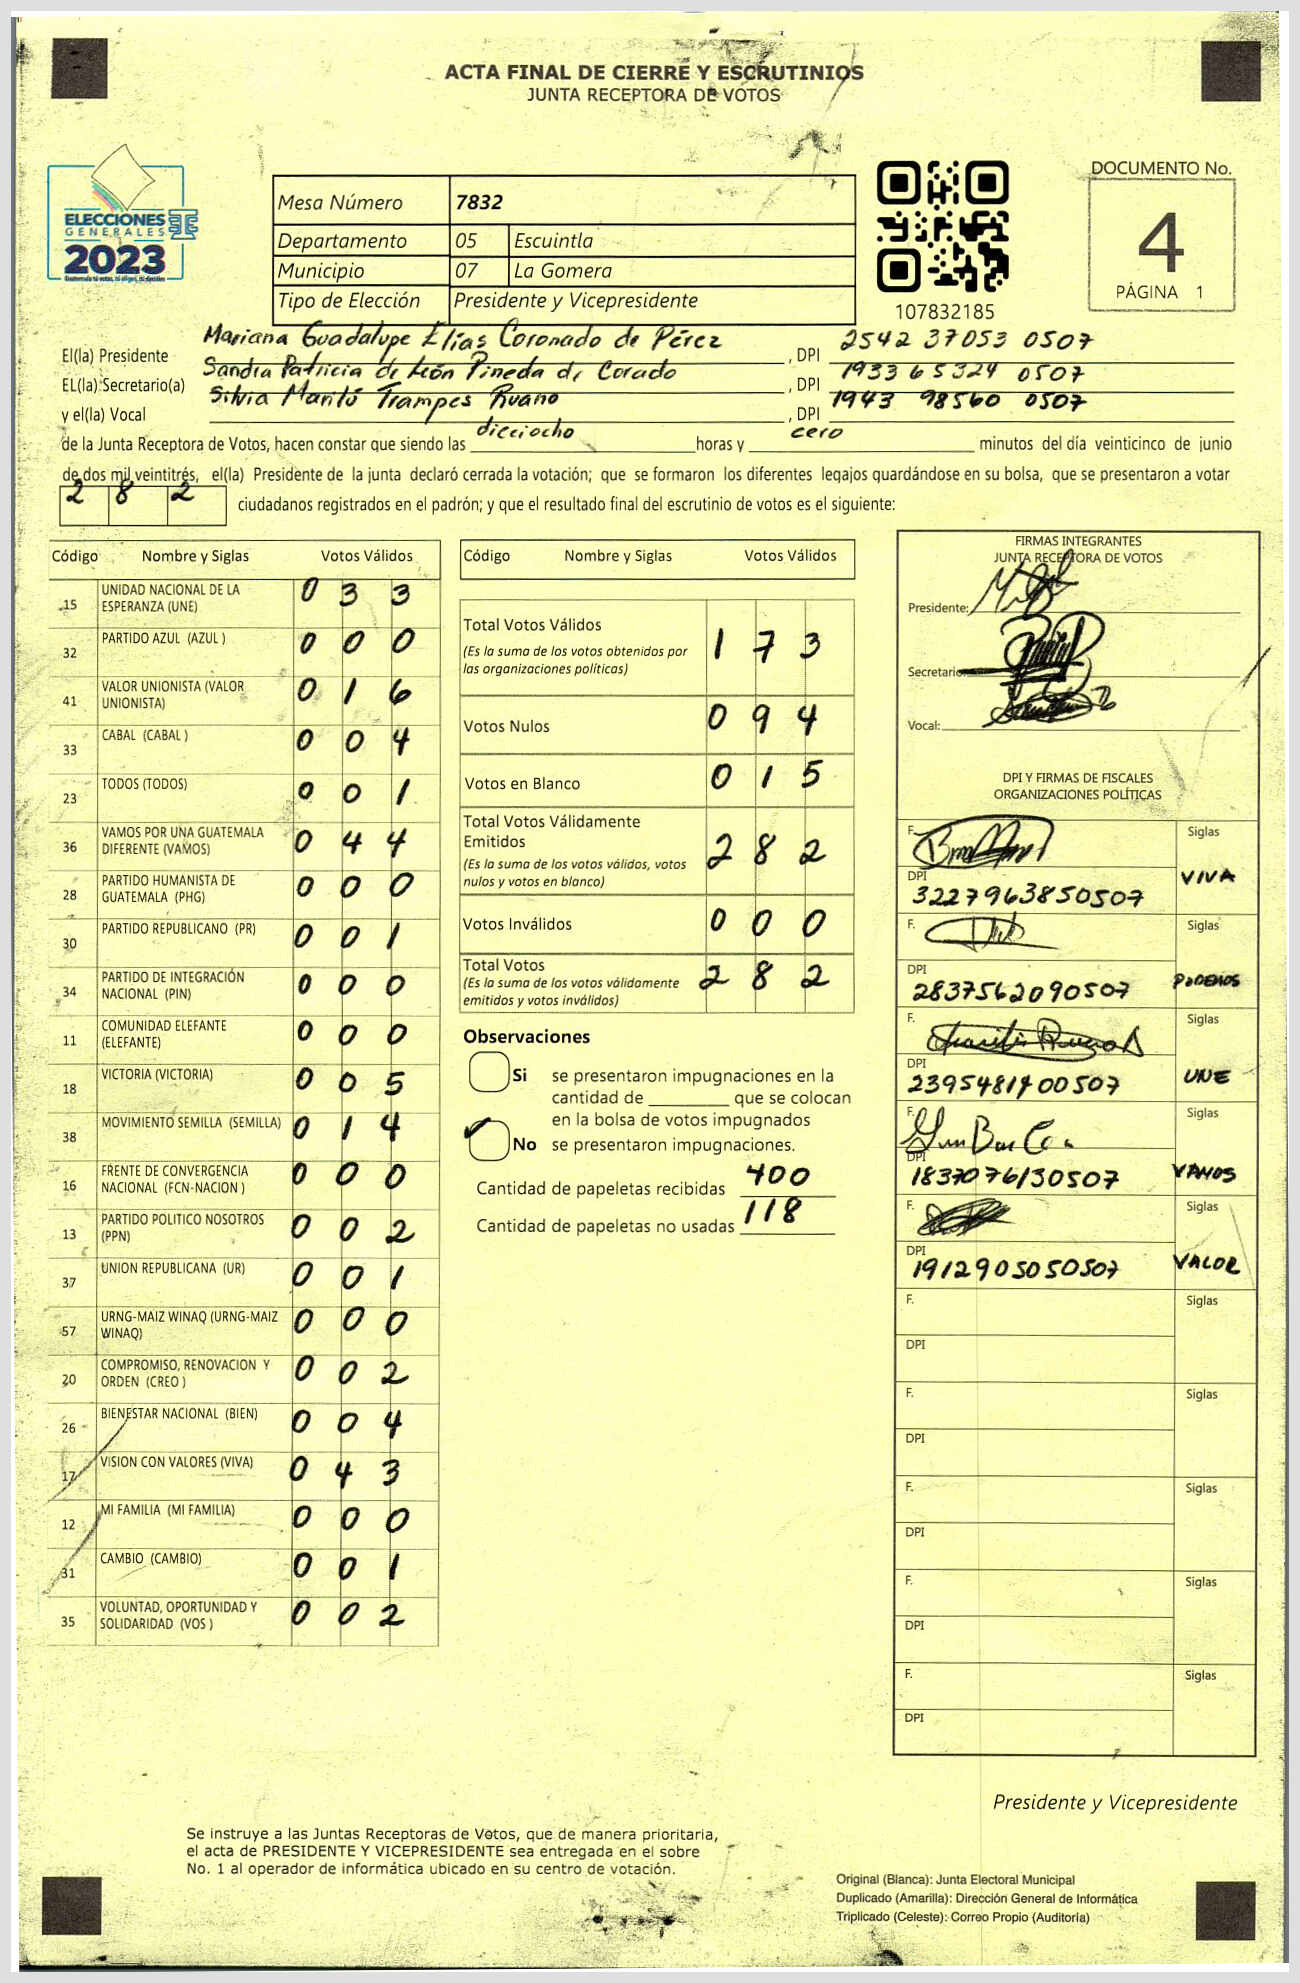 ACTA FINAL DE CIERRE Y ESCRUTINIOS
JUNTA RECEPTORA DE VOTOS
ELECCIONES
GENERALES
2023
Mesa Número 7832
Departamento 05 Escuintla
Municipio 07 La Gomera
Tipo de Elección Presidente y Vicepresidente
107832185
DOCUMENTO No.
4
PÁGINA 1
El(la) Presidente Mariana Guadalupe Elías Coronado de Pérez , DPI 2542 37053 0507
EL(la) Secretario(a) Sandra Patricia de León Pineda de Corado , DPI 1933 65324 0507
y el(la) Vocal Silvia Maritó Trampes Ruano , DPI 1943 98560 0507
de la Junta Receptora de Votos, hacen constar que siendo las dieciocho horas y cero minutos del día veinticinco de junio
de dos mil veintitrés, el(la) Presidente de la junta declaró cerrada la votación; que se formaron los diferentes legajos guardándose en su bolsa, que se presentaron a votar
2 8 2 ciudadanos registrados en el padrón; y que el resultado final del escrutinio de votos es el siguiente:
Código Nombre y Siglas Votos Válidos
15 UNIDAD NACIONAL DE LA ESPERANZA (UNE) 0 3 3
32 PARTIDO AZUL (AZUL ) 0 0 0
41 VALOR UNIONISTA (VALOR UNIONISTA) 0 1 6
33 CABAL (CABAL ) 0 0 4
23 TODOS (TODOS) 0 0 1
36 VAMOS POR UNA GUATEMALA DIFERENTE (VAMOS) 0 4 4
28 PARTIDO HUMANISTA DE GUATEMALA (PHG) 0 0 0
30 PARTIDO REPUBLICANO (PR) 0 0 1
34 PARTIDO DE INTEGRACIÓN NACIONAL (PIN) 0 0 0
11 COMUNIDAD ELEFANTE (ELEFANTE) 0 0 0
18 VICTORIA (VICTORIA) 0 0 5
38 MOVIMIENTO SEMILLA (SEMILLA) 0 1 4
16 FRENTE DE CONVERGENCIA NACIONAL (FCN-NACION ) 0 0 0
13 PARTIDO POLITICO NOSOTROS (PPN) 0 0 2
37 UNION REPUBLICANA (UR) 0 0 1
57 URNG-MAIZ WINAQ (URNG-MAIZ WINAQ) 0 0 0
20 COMPROMISO, RENOVACION Y ORDEN (CREO ) 0 0 2
26 BIENESTAR NACIONAL (BIEN) 0 0 4
17 VISION CON VALORES (VIVA) 0 4 3
12 MI FAMILIA (MI FAMILIA) 0 0 0
31 CAMBIO (CAMBIO) 0 0 1
35 VOLUNTAD, OPORTUNIDAD Y SOLIDARIDAD (VOS ) 0 0 2
Código Nombre y Siglas Votos Válidos
Total Votos Válidos 1 7 3
(Es la suma de los votos obtenidos por
las organizaciones políticas)
Votos Nulos 0 9 4
Votos en Blanco 0 1 5
Total Votos Válidamente
Emitidos 2 8 2
(Es la suma de los votos válidos, votos
nulos y votos en blanco)
Votos Inválidos 0 0 0
Total Votos 2 8 2
(Es la suma de los votos válidamente
emitidos y votos inválidos)
Observaciones
Si se presentaron impugnaciones en la
cantidad de ________ que se colocan
en la bolsa de votos impugnados
No se presentaron impugnaciones.
Cantidad de papeletas recibidas 400
Cantidad de papeletas no usadas 118
FIRMAS INTEGRANTES
JUNTA RECEPTORA DE VOTOS
Presidente:
Secretario:
Vocal:
DPI Y FIRMAS DE FISCALES
ORGANIZACIONES POLÍTICAS
F. Siglas
DPI 3227963850507 VIVA
F. Siglas
DPI 2837562090507 PODEMOS
F. Siglas
DPI 2395481400507 UNE
F. Siglas
DPI 1837076130507 VAMOS
F. Siglas
DPI 1912905050507 VALOR
F. Siglas
DPI
F. Siglas
DPI
F. Siglas
DPI
F. Siglas
DPI
F. Siglas
DPI
Presidente y Vicepresidente
Se instruye a las Juntas Receptoras de Votos, que de manera prioritaria,
el acta de PRESIDENTE Y VICEPRESIDENTE sea entregada en el sobre
No. 1 al operador de informática ubicado en su centro de votación.
Original (Blanca): Junta Electoral Municipal
Duplicado (Amarilla): Dirección General de Informática
Triplicado (Celeste): Correo Propio (Auditoría)